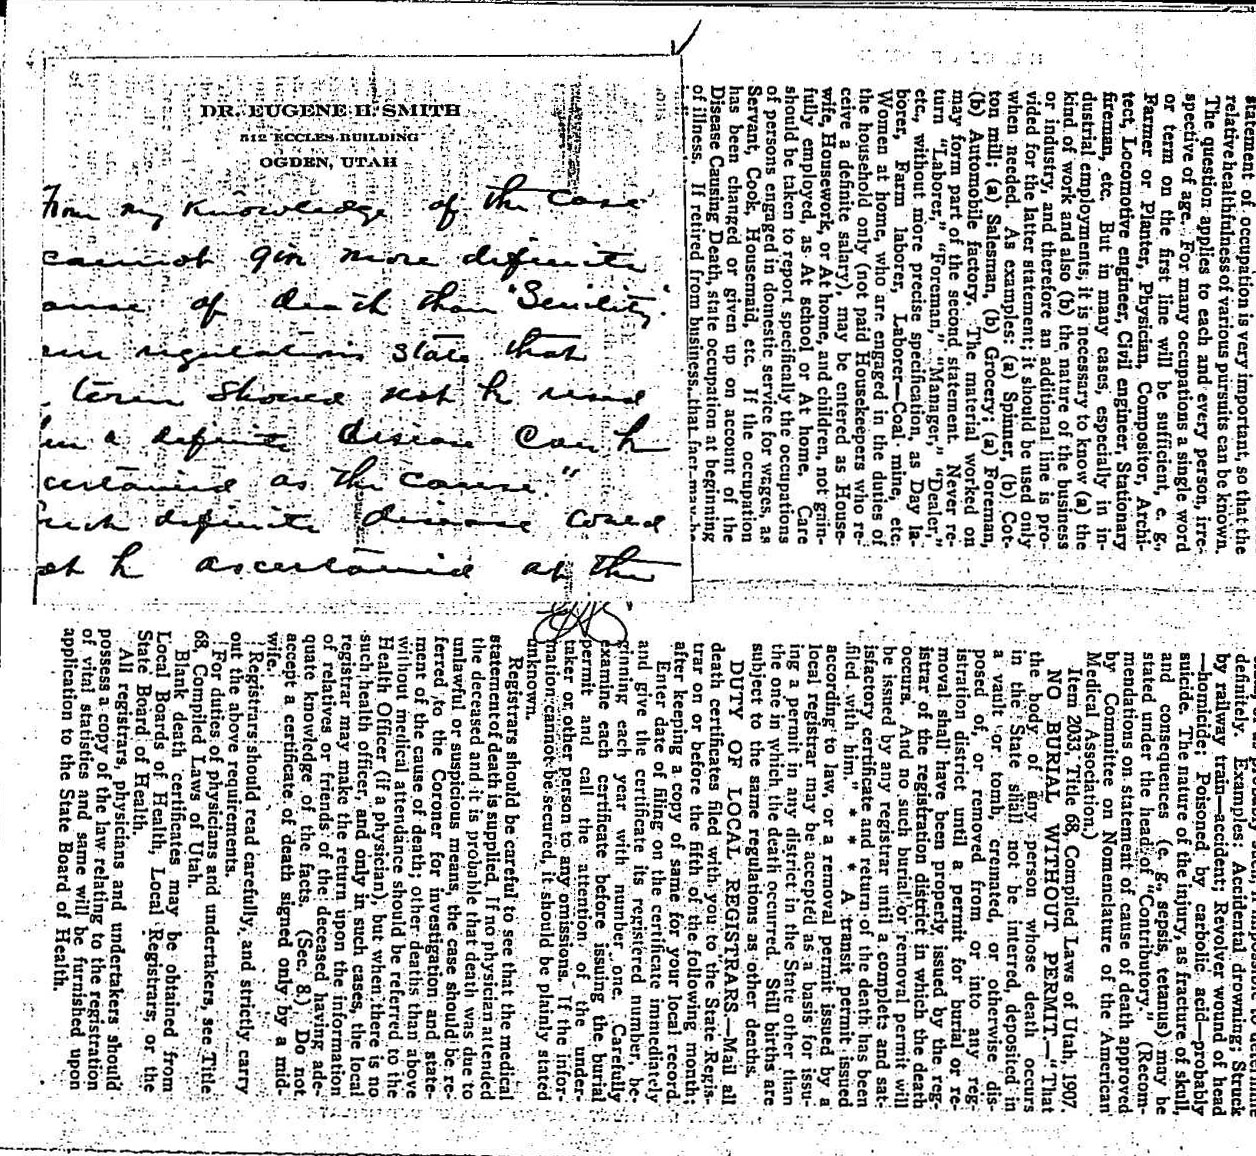 DR. EUGENE H. SMITH
512 ECCLES BUILDING
OGDEN, UTAH
From my knowledge of the case
cannot give more definite
ause of death than "Senility".
regulations state that
term should not be used
a definite disease can be
certained as the cause."
such definite disease could
ot be ascertained at the
statement of occupation is very important, so that the
relative healthfulness of various pursuits can be known.
The question applies to each and every person, irre-
spective of age. For many occupations a single word
or term on the first line will be sufficient, e. g.,
Farmer or Planter, Physician, Compositor, Archi-
tect, Locomotive engineer, Civil engineer, Stationary
fireman, etc. But in many cases, especially in in-
dustrial employments, it is necessary to know (a) the
kind of work and also (b) the nature of the business
or industry, and therefore an additional line is pro-
vided for the latter statement; it should be used only
when needed. As examples: (a) Spinner, (b) Cot-
ton mill; (a) Salesman, (b) Grocery; (a) Foreman,
(b) Automobile factory. The material worked on
may form part of the second statement. Never re-
turn "Laborer," "Foreman," "Manager," "Dealer,"
etc., without more precise specification, as Day la-
borer, Farm laborer, Laborer—Coal mine, etc.
Women at home, who are engaged in the duties of
the household only (not paid Housekeepers who re-
ceive a definite salary), may be entered as House-
wife, Housework, or At home, and children, not gain-
fully employed, as At school or At home. Care
should be taken to report specifically the occupations
of persons engaged in domestic service for wages, as
Servant, Cook, Housemaid, etc. If the occupation
has been changed or given up on account of the
Disease Causing Death, state occupation at beginning
of illness. If retired from business, that fact may be
definitely. Examples: Accidental drowning; Struck
by railway train—accident; Revolver wound of head
—homicide; Poisoned by carbolic acid—probably
suicide. The nature of the injury, as fracture of skull,
and consequences (e. g., sepsis, tetanus) may be
stated under the head of "Contributory." (Recom-
mendations on statement of cause of death approved
by Committee on Nomenclature of the American
Medical Association.)
Item 2033, Title 68, Compiled Laws of Utah, 1907.
NO BURIAL WITHOUT PERMIT.—"That
the body of any person whose death occurs
in the State shall not be interred, deposited in
a vault or tomb, cremated, or otherwise dis-
posed of, or removed from or into any reg-
istration district until a permit for burial or re-
moval shall have been properly issued by the reg-
istrar of the registration district in which the death
occurs. And no such burial or removal permit will
be issued by any registrar until a complete and sat-
isfactory certificate and return of the death has been
filed with him." * * * A transit permit issued
according to law, or a removal permit issued by a
local registrar may be accepted as a basis for issu-
ing a permit in any district in the State other than
the one in which the death occurred. Still births are
subject to the same regulations as other deaths.
DUTY OF LOCAL REGISTRARS.—Mail all
death certificates filed with you to the State Regis-
trar on or before the fifth of the following month;
after keeping a copy of same for your local record.
Enter date of filing on the certificate immediately
and give the certificate its registered number, be-
ginning each year with number one. Carefully
examine each certificate before issuing the burial
permit and call the attention of the under-
taker or other person to any omissions. If the infor-
mation cannot be secured, it should be plainly stated
unknown.
Registrars should be careful to see that the medical
statement of death is supplied. If no physician attended
the deceased and it is probable that death was due to
unlawful or suspicious means, the case should be re-
ferred to the Coroner for investigation and state-
ment of the cause of death; other deaths than above
without medical attendance should be referred to the
Health Officer (if a physician), but when there is no
such health officer, and only in such cases, the local
registrar may make the return upon the information
of relatives or friends of the deceased having ade-
quate knowledge of the facts. (Sec. 8.) Do not
accept a certificate of death signed only by a mid-
wife.
Registrars should read carefully, and strictly carry
out the above requirements.
For duties of physicians and undertakers, see Title
68, Compiled Laws of Utah.
Blank death certificates may be obtained from
Local Boards of Health, Local Registrars, or the
State Board of Health.
All registrars, physicians and undertakers should
possess a copy of the law relating to the registration
of vital statistics and same will be furnished upon
application to the State Board of Health.